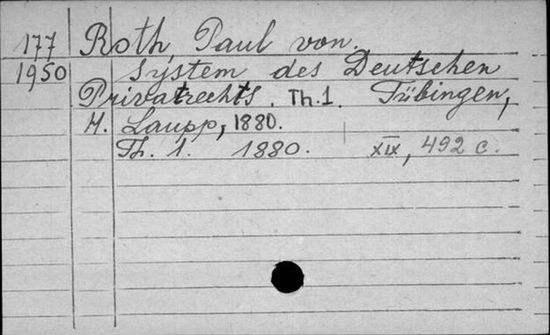 177 Roth Paul von.
1950 System des Deutschen
Privatrechts. Th.1. Tübingen,
H. Laupp, 1880.
Th. 1. 1880. XIX, 492 c.